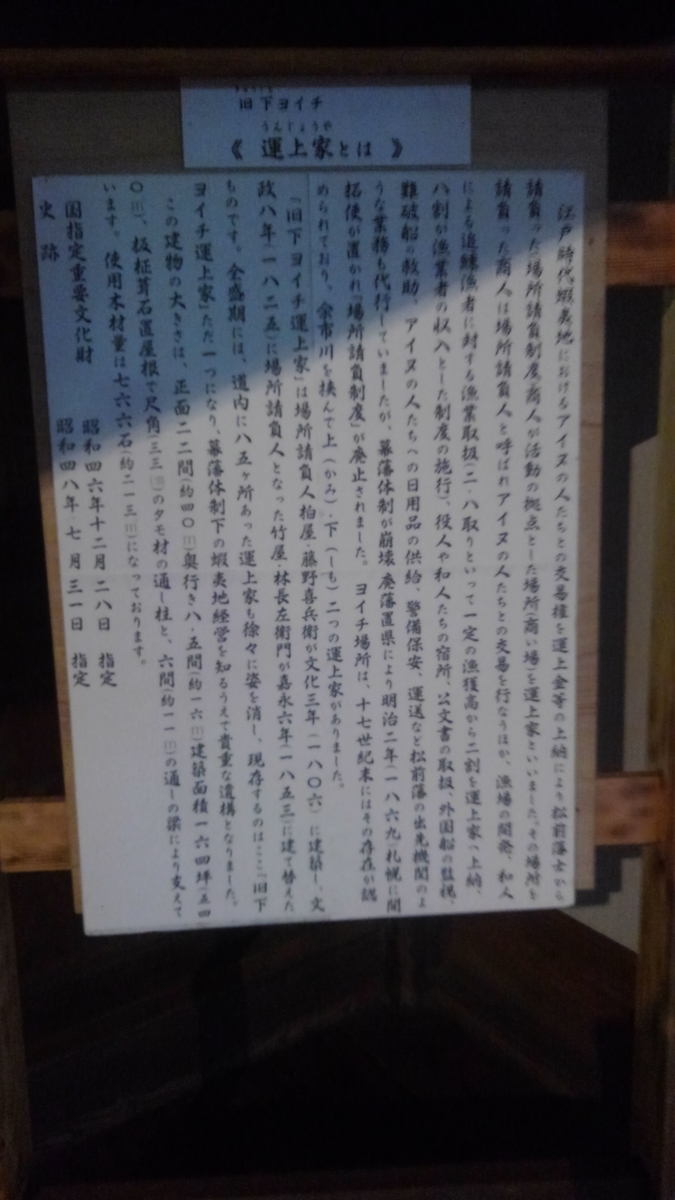 旧下ヨイチ
うんじょうや
《 運上家とは 》
江戸時代蝦夷地におけるアイヌの人たちとの交易権を運上金等の上納により松前藩士から
請負った「場所請負制度」商人が活動の拠点とした場所(商い場)を運上家といいました。その場所を
請負った商人は場所請負人と呼ばれアイヌの人たちとの交易を行なうほか、漁場の開発、和人
による追鰊漁者に対する漁業取扱(二・八取りといって一定の漁獲高から二割を運上家へ上納、
八割が漁業者の収入とした制度の施行)、役人や和人たちの宿所、公文書の取扱、外国船の監視、
難破船の救助、アイヌの人たちへの日用品の供給、警備保安、運送など松前藩の出先機関のよ
うな業務も代行していましたが、幕藩体制が崩壊、廃藩置県により明治二年(一八六九)札幌に開
拓使が置かれ『場所請負制度』が廃止されました。 ヨイチ場所は、十七世紀末にはその存在が認
められており、余市川を挟んで上(かみ)・下(しも)二つの運上家がありました。
「旧下ヨイチ運上家」は場所請負人柏屋・藤野喜兵衛が文化三年(一八〇六)に建築し、文
政八年(一八二五)に場所請負人となった竹屋・林長左衛門が嘉永六年(一八五三)に建て替えた
ものです。全盛期には、道内に八五ヶ所あった運上家も徐々に姿を消し、現存するのはここ「旧下
ヨイチ運上家」ただ一つになり、幕藩体制下の蝦夷地経営を知るうえで貴重な遺構となりました。
この建物の大きさは、正面二二間(約四〇㍍)奥行き八・五間(約一六㍍)建築面積一六四坪(五四
〇㎡)、板柾葺石置屋根で尺角(三三㌢)のタモ材の通し柱と、六間(約一一㍍)の通しの梁により支えて
います。使用木材量は七六六石(約二一三㎥)になっております。
国指定重要文化財 昭和四六年十二月 二八日 指定
史跡 昭和四八年 七 月 三一日 指定